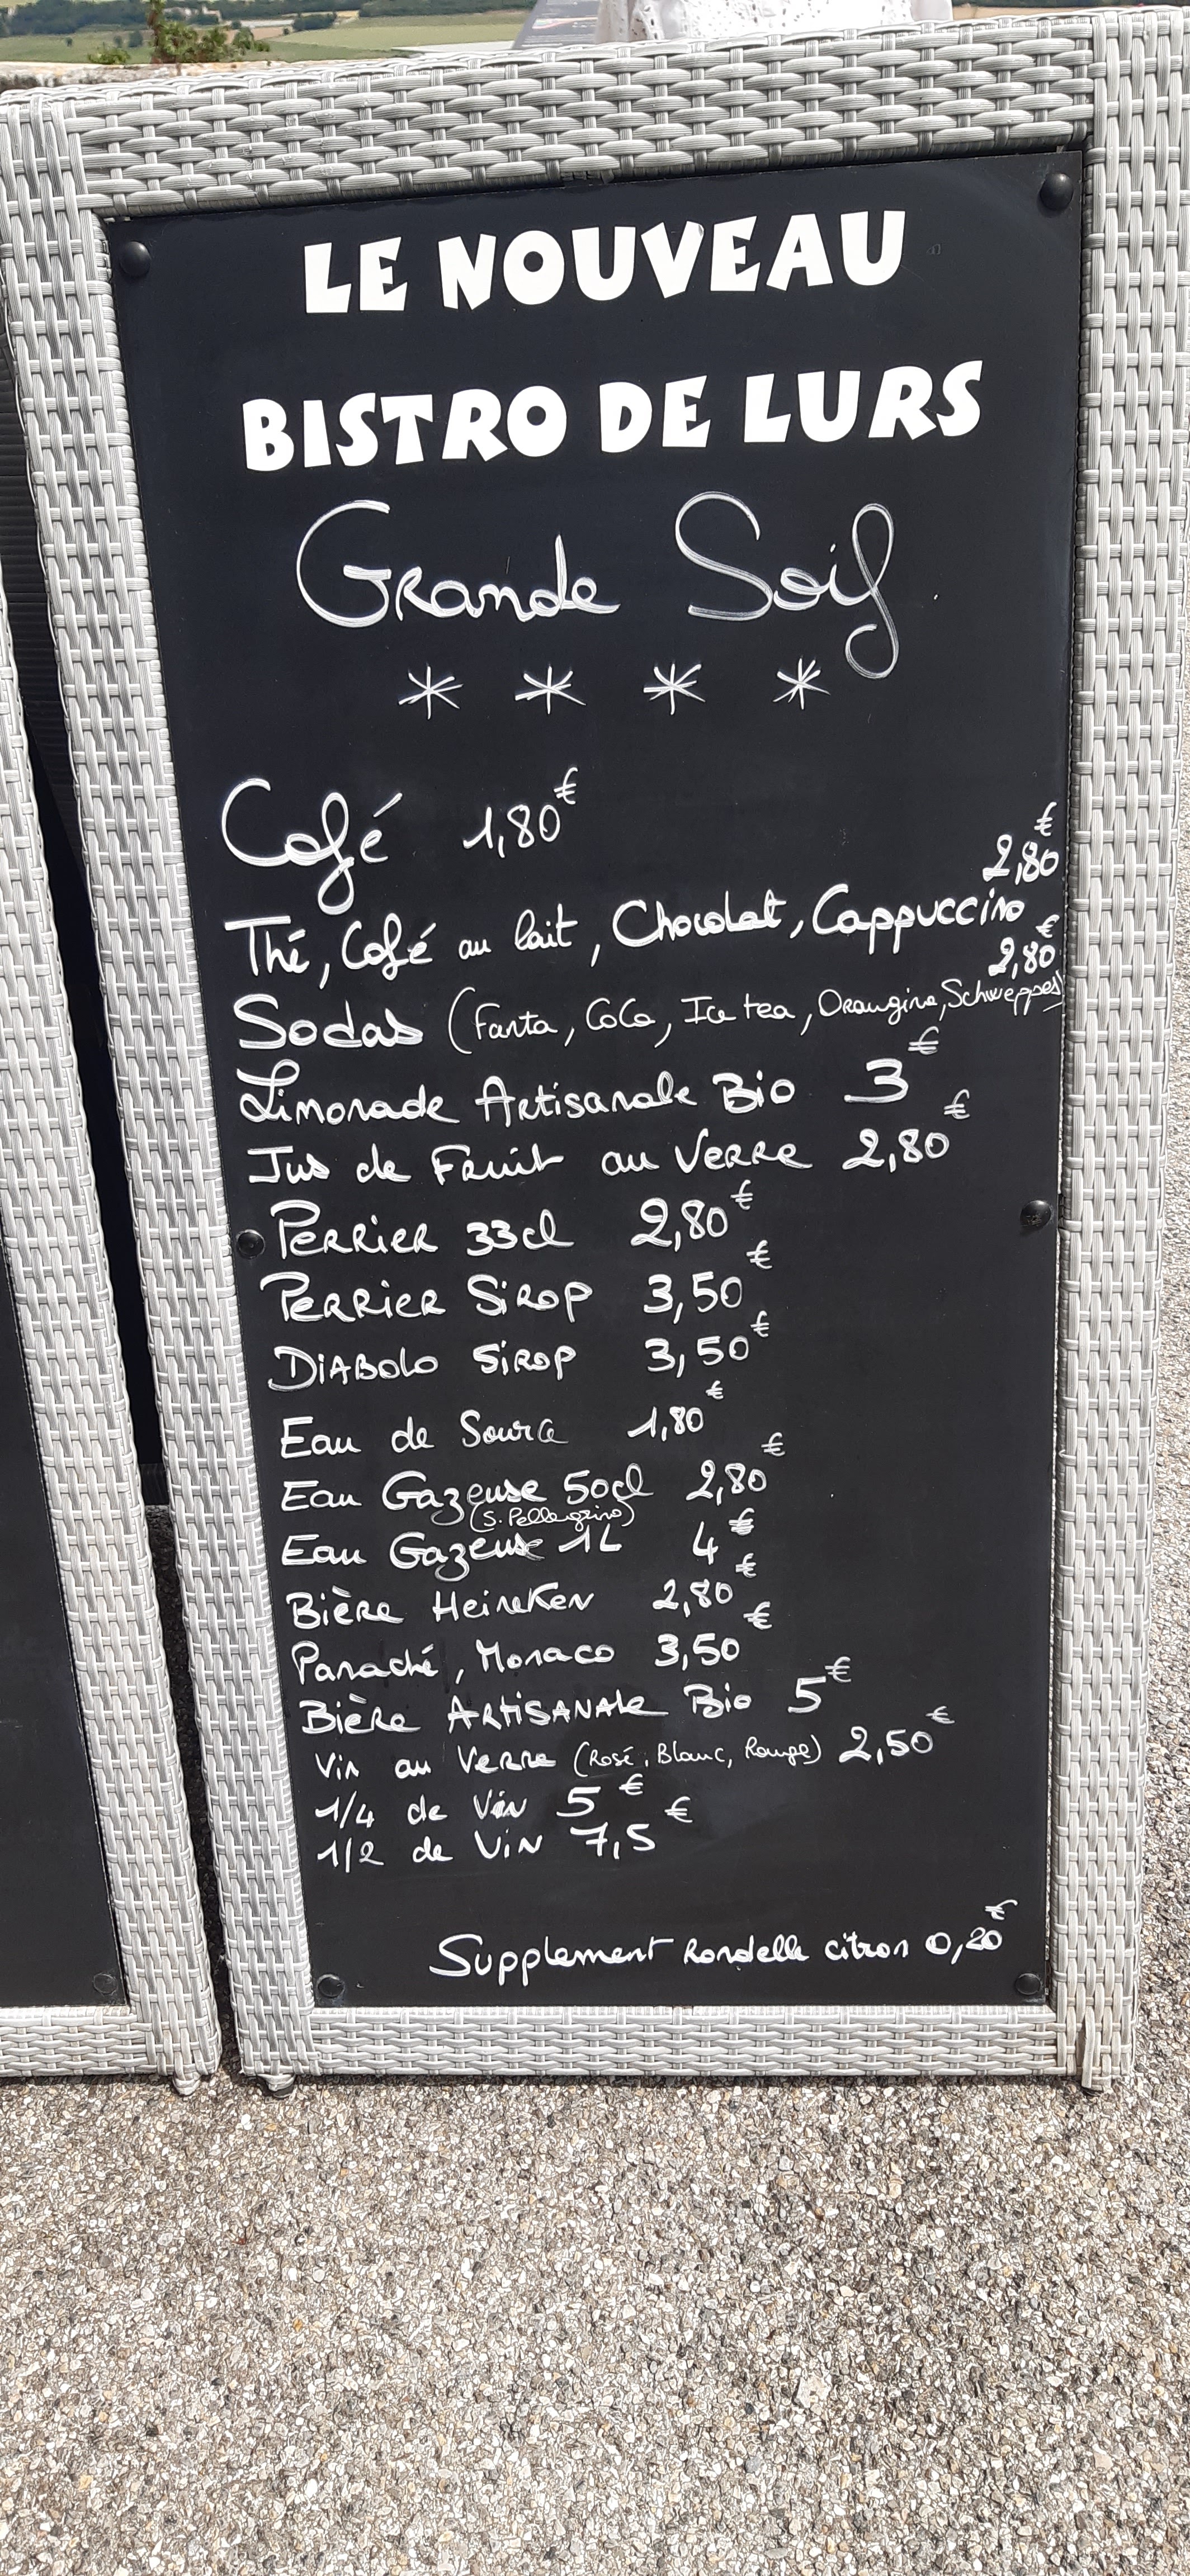 LE NOUVEAU
BISTRO DE LURS
Grande Soif
* * * *
Café 1,80€
Thé, Café au lait, Chocolat, Cappuccino 2,80€
Sodas (Fanta, CoCa, Ice tea, Orangina, Schweppes) 2,80€
Limonade Artisanale Bio 3€
Jus de Fruit au Verre 2,80€
Perrier 33cl 2,80€
Perrier Sirop 3,50€
Diabolo Sirop 3,50€
Eau de Source 1,80€
Eau Gazeuse 50cl 2,80€
(S. Pellegrino)
Eau Gazeuse 1L 4€
Bière Heineken 2,80€
Panaché, Monaco 3,50€
Bière Artisanale Bio 5€
Vin au Verre (Rosé, Blanc, Rouge) 2,50€
1/4 de Vin 5€
1/2 de Vin 7,5€
Supplement Rondelle citron 0,20€